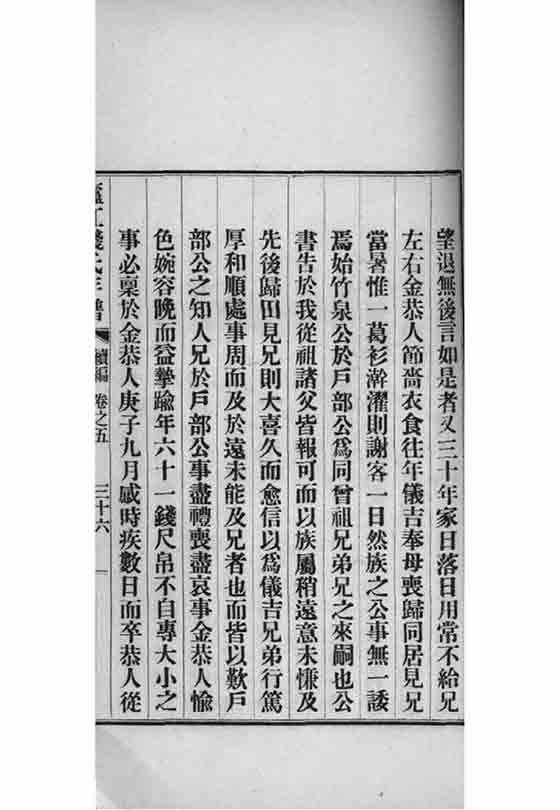 望退無後言如是者又三十年家日落日用常不給兄
左右金恭人節嗇衣食往年儀吉奉母喪歸同居見兄
當暑惟一葛衫澣濯則謝客一日然族之公事無一諉
焉始竹泉公於戶部公爲同曾祖兄弟兄之來嗣也公
書告於我從祖諸父皆報可而以族屬稍遠意未慊及
先後歸田見兄則大喜久而愈信以爲儀吉兄弟行篤
厚和順處事周而及於遠未能及兄者也而皆以歎戶
部公之知人兄於戶部公事盡禮喪盡哀事金恭人愉
色婉容晚而益摯踰年六十一錢尺帛不自專大小之
事必稟於金恭人庚子九月感時疾數日而卒恭人從
廬江錢氏年譜 續編 卷之五 三十六